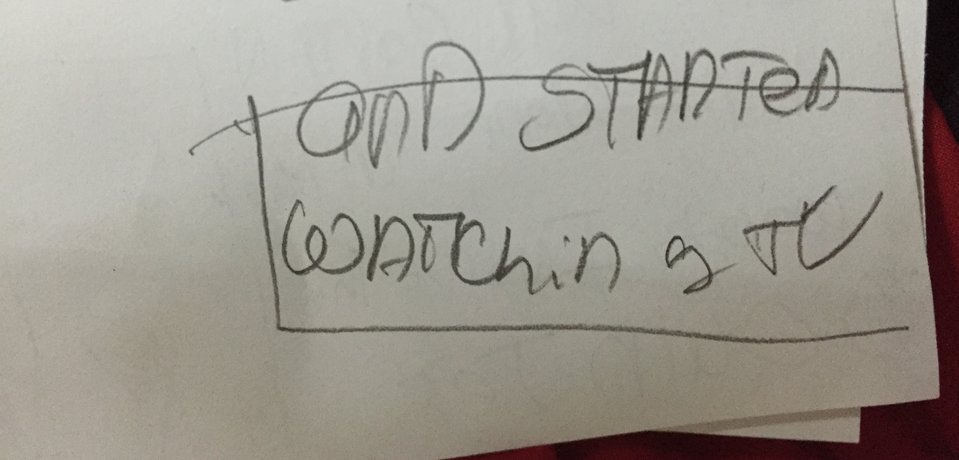 anD STARTeD
WATChing TV